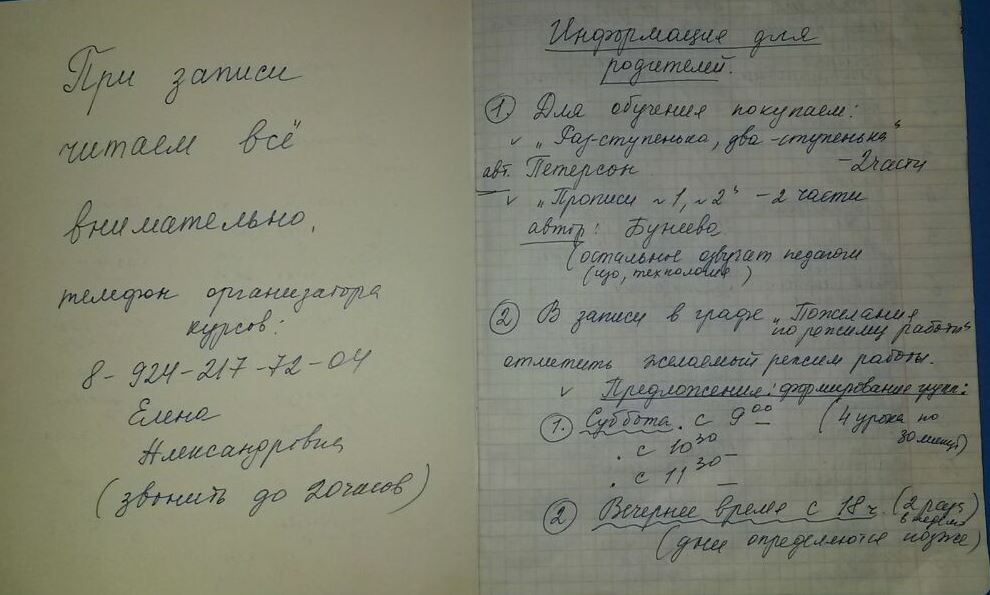 При записи
читаем всё
внимательно,
телефон организатора
курсов:
8-924-217-72-04
Елена
Александровна
(звонить до 20 часов)
Информация для
родителей.
1. Для обучения покупаем:
v „Раз-ступенька, два-ступенька"
авт. Петерсон - 2 части
v „Прописи ~1, ~2" - 2 части
автор: Бунеева
(остальное озвучат педагоги
(изо, технология)
2 В записи в графе „Пожелания
по режиму работы"
отметить желаемый режим работы.
v Предложения: формирование групп:
1. Суббота. с 9⁰⁰ – (4 урока по
30 минут)
. с 10³⁰ –
. с 11³⁰ –
2 Вечернее время с 18 ч. (2 раза
в неделю
(дни определяются позже)